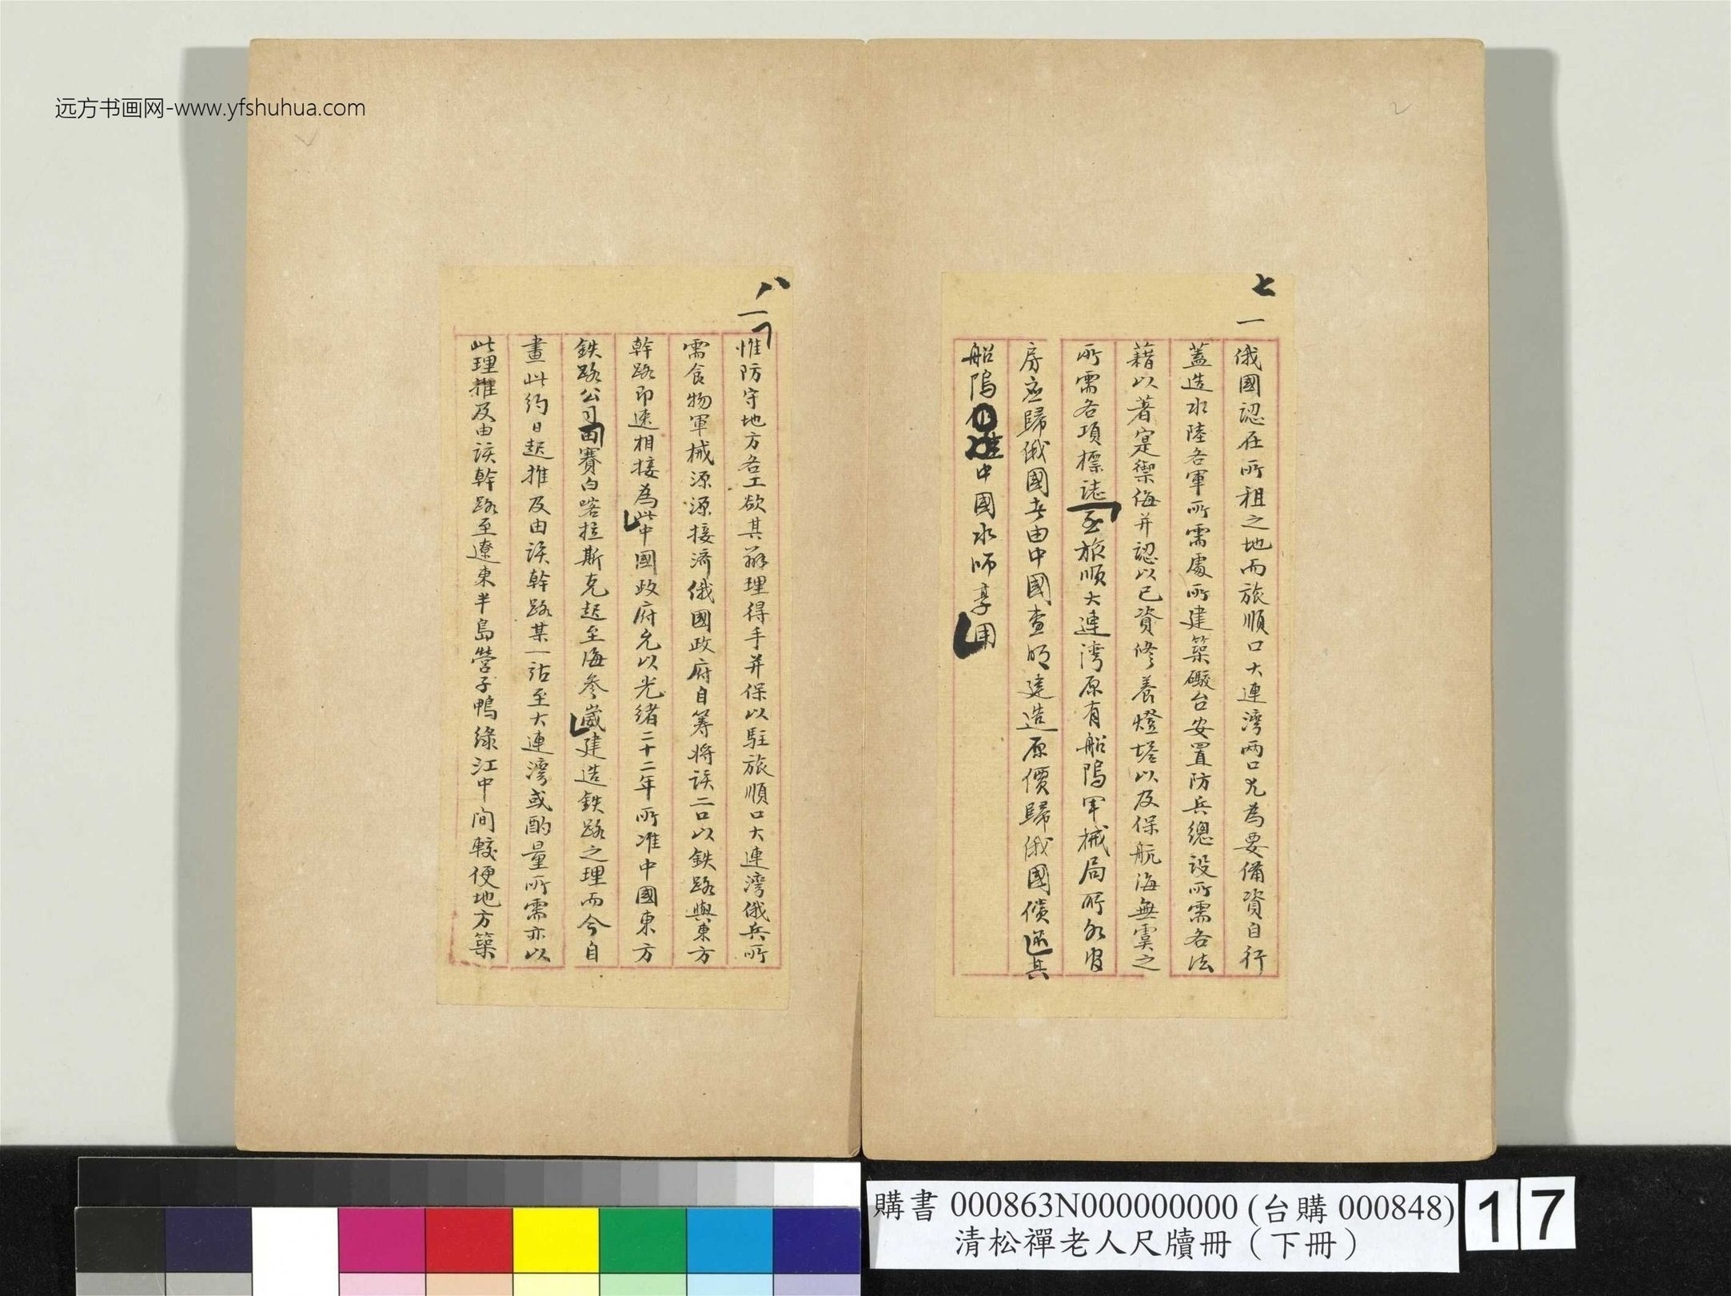 远方书画网-www.yfshuhua.com
七
一
俄國認在所租之地而旅順口大連灣兩口尤為要備資自行
蓋造水陸各軍所需處所建築礮台安置防兵總設所需各法
藉以著寔禦侮并認以己資修養燈塔以及保航海無虞之
所需各項標誌至旅順大連灣原有船塢軍械局所各
房應歸俄國者由中國查明建造原價歸俄國償還其
船塢准中國水師享用
八
一
惟防守地方各工欲其辦理得手并保以駐旅順口大連灣俄兵所
需食物軍械源源接濟俄國政府自籌將該二口以鉄路與東方
幹路即速相接為此中國政府允以光緒二十二年所准中國東方
鉄路公司由賽白喀拉斯克起至海參崴建造鉄路之理而今自
畫此約日起推及由該幹路某一站至大連灣或酌量所需亦以
此理推及由該幹路至遼東半島營子鴨綠江中間較便地方築
購書 000863N000000000 (台購 000848)
清松禪老人尺牘冊（下冊）
17